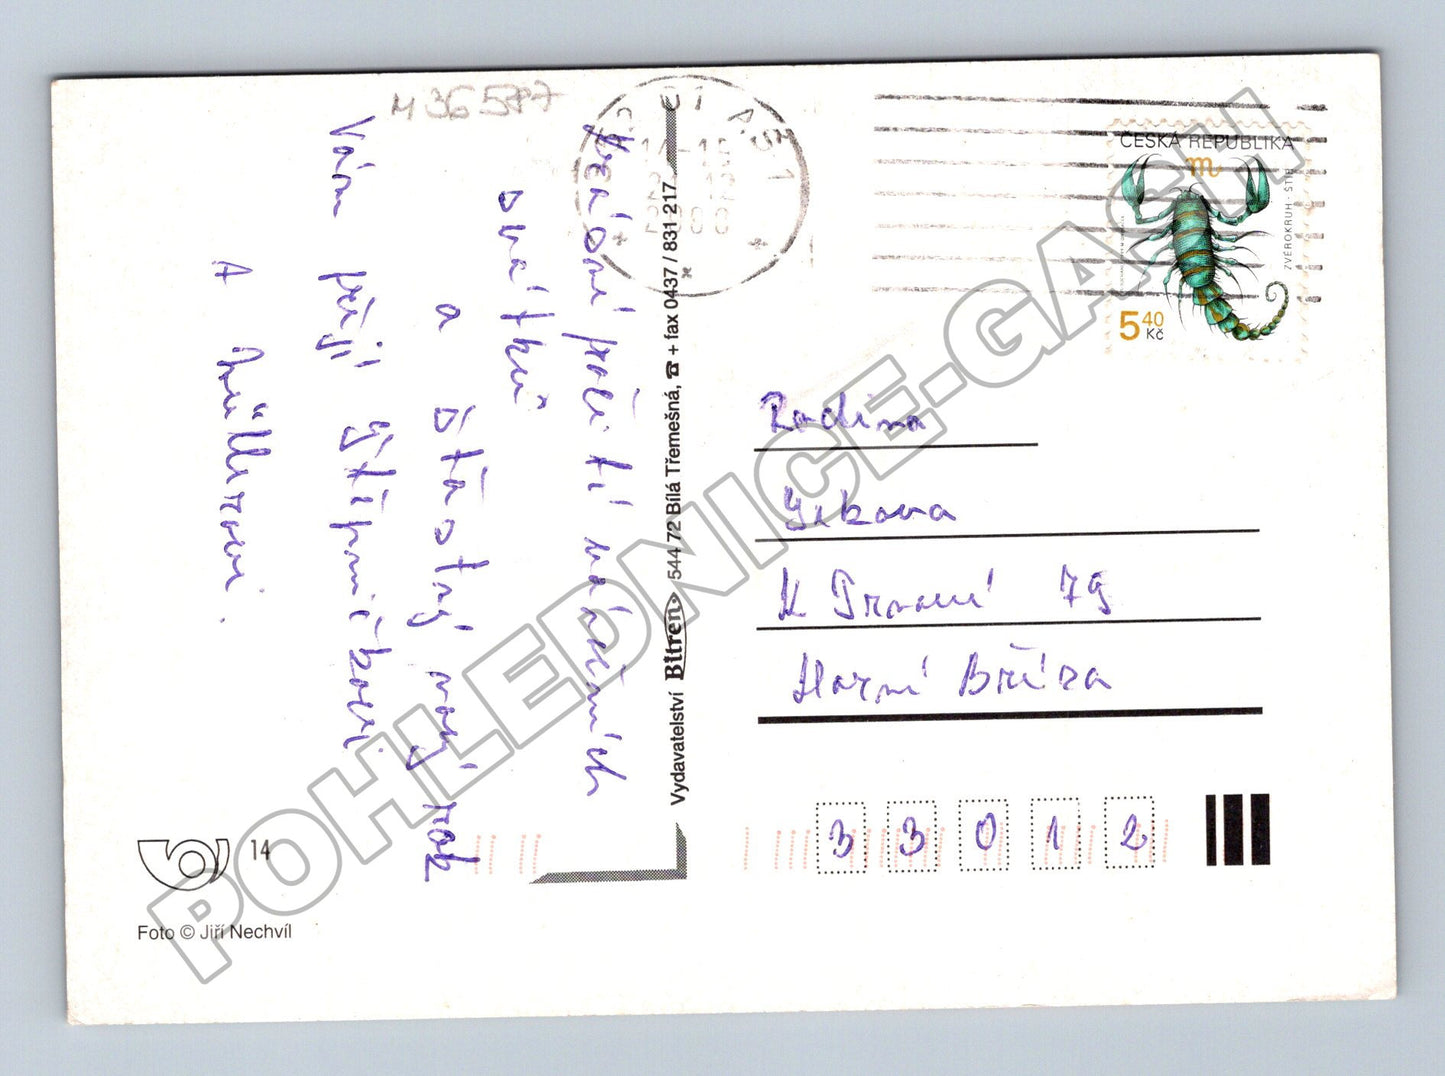 M 36577
Veselé prožití vánočních
svátků
a šťastný nový rok
Vám přejí Štěpničkovi
A Müllerovi.
Vydavatelství Bitren 544 72 Bílá Třemešná, ☎ + fax 0437 / 831 217
ČESKÁ REPUBLIKA
ZVĚROKRUH - ŠTÍR
5 40 Kč
Rodina
79
Horní Bříza
3 3 0 1 2
14
Foto © Jiří Nechvíl
POHLEDNICE-GASH